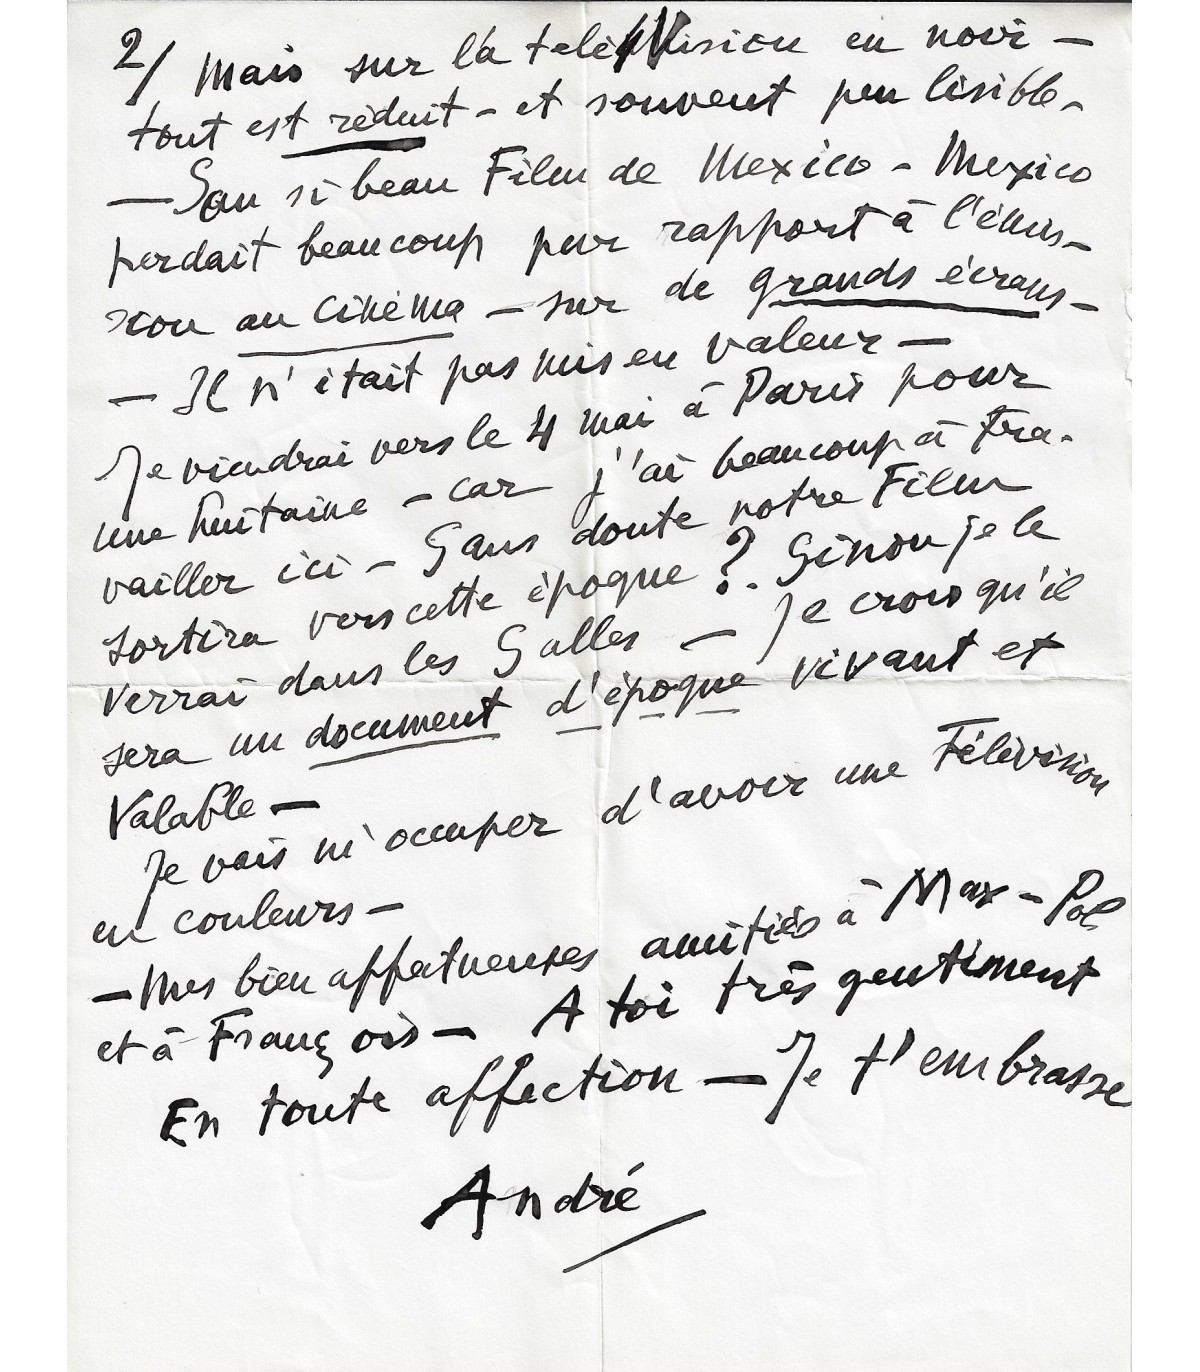 2/ Mais sur la télévision en noir –
tout est réduit – et souvent peu lisible –
– Son si beau Film de Mexico – Mexico
perdait beaucoup par rapport à l'émis–
sion au cinéma – sur de grands écrans –
– Il n'était pas mis en valeur –
Je viendrai vers le 4 mai à Paris pour
une huitaine – car j'ai beaucoup à tra-
vailler ici – Sans doute notre Film
sortira vers cette époque ? Sinon je le
verrai dans les Salles – Je crois qu'il
sera un document d'époque vivant et
Valable –
Je vais m'occuper d'avoir une Télévision
en couleurs –
– Mes bien affectueuses amitiés à Max – Pol
et à François – A toi très gentiment
En toute affection – Je t'embrasse
André